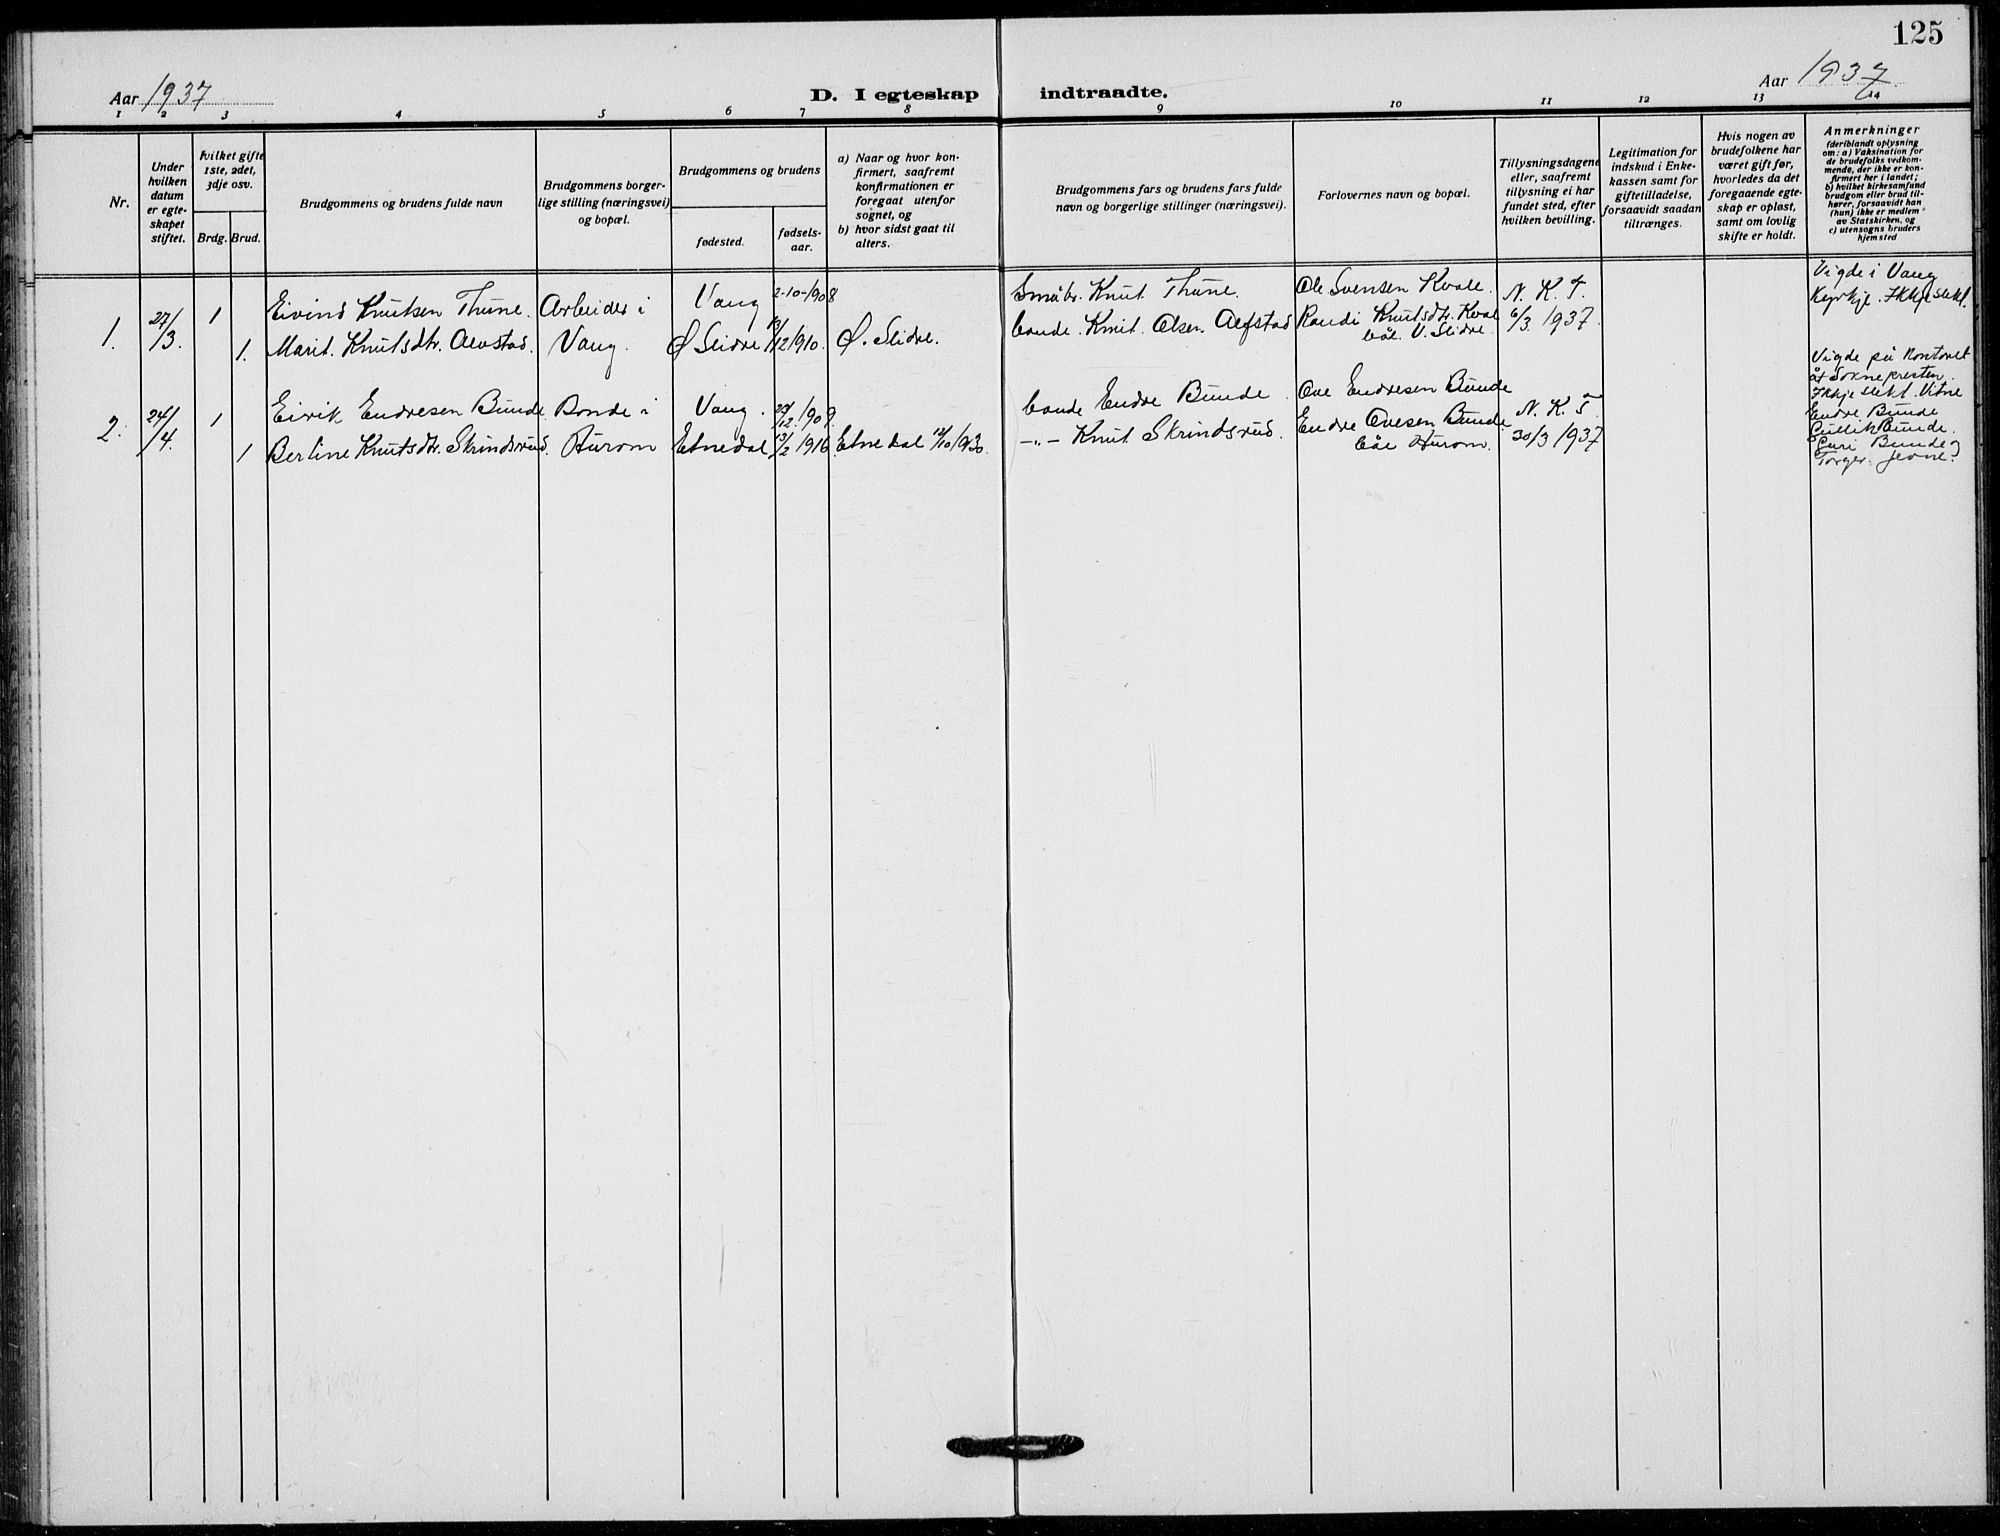 125
Aar 1937
D. I egteskap indtraadte.
Aar 1937
1 2 3 4 5 6 7 8 9 10 11 12 13 14
Nr.
Under
hvilken
datum
er egte-
skapet
stiftet.
hvilket gifte
1ste, 2det,
3dje osv.
Brdg. Brud.
Brudgommens og brudens fulde navn
Brudgommens borger-
lige stilling (næringsvei)
og bopæl.
Brudgommens og brudens
fødested.
fødsels-
aar.
a) Naar og hvor kon-
firmert, saafremt
konfirmationen er
foregaat utenfor
sognet, og
b) hvor sidst gaat til
alters.
Brudgommens fars og brudens fars fulde
navn og borgerlige stillinger (næringsvei).
Forlovernes navn og bopæl.
Tillysningsdagene
eller, saafremt
tillysning ei har
fundet sted, efter
hvilken bevilling.
Legitimation for
indskud i Enke-
kassen samt for
giftetilladelse,
forsaavidt saadan
tiltrænges.
Hvis nogen av
brudefolkene har
været gift før,
hvorledes da det
foregaaende egte-
skap er opløst,
samt om lovlig
skifte er holdt.
Anmerkninger
(deriblandt oplysning
om: a) Vaksination for
de brudefolks vedkom-
mende, der ikke er kon-
firmert her i landet;
b) hvilket kirkesamfund
brudgom eller brud til-
hører, forsaavidt han
(hun) ikke er medlem
av Statskirken, og
c) utensogns bruders
hjemsted
1. 27/3. 1 Eivind Knutsen Thune. Arbeider i Vang 2-10-1908 Småbr. Knut Thune. Ole Svensen Kvale. N. K. T.
1. Marit Knutsdtr. Alvstad. Vang. Ø Slidre 13/12 1910. Ø. Slidre. bonde. Knut Olsen Alfstad Randi Knutsdtr. Kvale 6/3 1937.
båe V. Slidre.
Vigde i Vang
Kyrkje. Ikkje slekt.
2. 24/4. 1 Eirik Endresen Bunde Bonde i Vang. 29/12 1909. bonde Endre Bunde. Ove Endresen Bunde N. K. T.
1 Berline Knutsdtr. Skrindsrud. Hurom Etnedal 13/2 1916 Etnedal 12/10 1930. -"- Knut Skrindsrud. Endre Ovesen Bunde 30/3 1937
båe Hurom.
Vigde på kontoret
åt Soknepresten.
Ikkje slekt. Vitne
Endre Bunde
Gullik Bunde.
Guri Bunde
Torger Jevne.